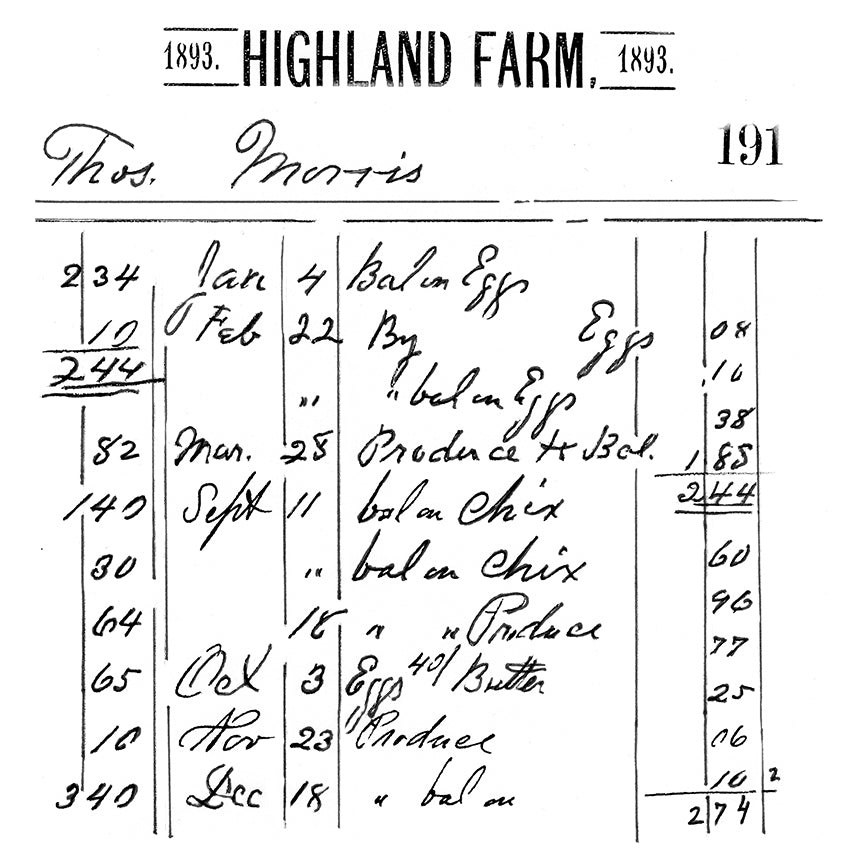 1893. HIGHLAND FARM, 1893.
Thos. Morris 191
2 34 Jan 4 Bal on Eggs
10 Feb 22 By Eggs 08
2 44 .10
" " bal on Eggs
38
82 Mar. 28 Produce to Bal. 1 88
1 40 Sept 11 bal on Chix 2 44
30 " bal on Chix 60
64 18 " " Produce 96
77
65 Oct 3 Eggs 40/ Butter 25
10 Nov 23 " Produce 06
10 2
3 40 Dec 18 " bal on 2 74